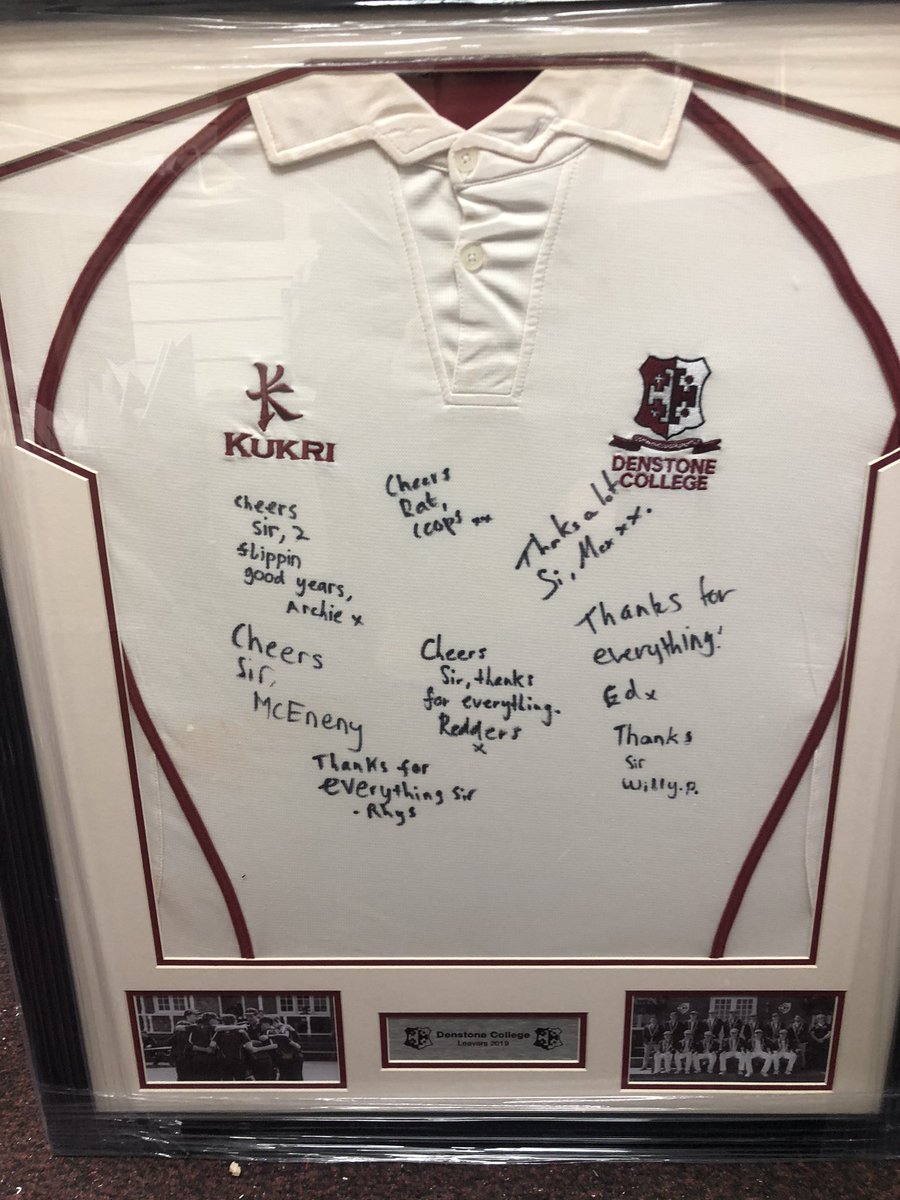 KUKRI
DENSTONE
COLLEGE
Cheers
Rat,
Cheers
Sir, 2
flippin
good years,
Archie x
Thanks a lot
Si, Max xx.
Cheers
Sir,
McEneny
Cheers
Sir, thanks
for everything.
Redders
x
Thanks for
everything!
Ed x
Thanks
Sir
Willy.P.
Thanks for
everything Sir
- Rhys
Denstone College
Leavers 2019